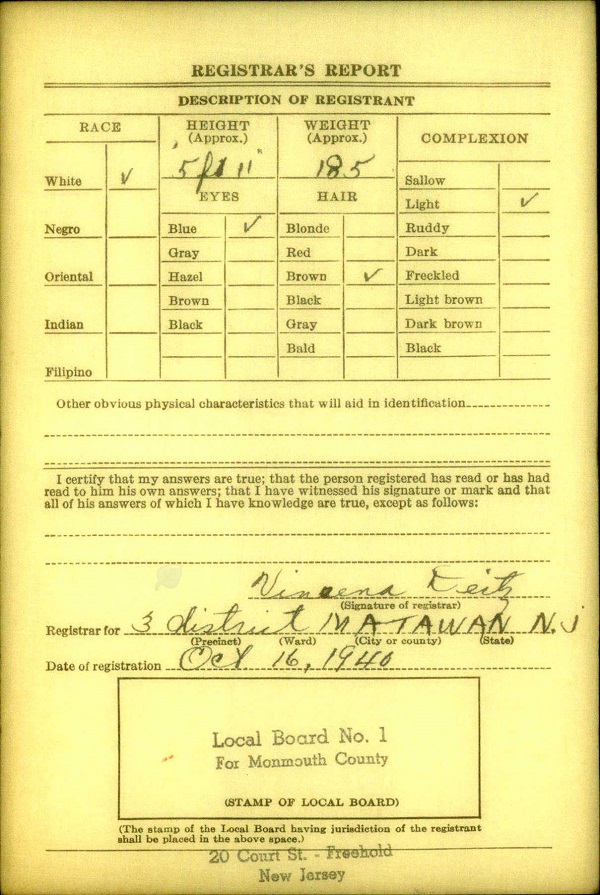 REGISTRAR'S REPORT
DESCRIPTION OF REGISTRANT
RACE
HEIGHT
(Approx.)
WEIGHT
(Approx.)
COMPLEXION
5 ft 11"
185
White ✓
Negro
Oriental
Indian
Filipino
EYES
Blue ✓
Gray
Hazel
Brown
Black
HAIR
Blonde
Red
Brown ✓
Black
Gray
Bald
Sallow
Light ✓
Ruddy
Dark
Freckled
Light brown
Dark brown
Black
Other obvious physical characteristics that will aid in identification
I certify that my answers are true; that the person registered has read or has had
read to him his own answers; that I have witnessed his signature or mark and that
all of his answers of which I have knowledge are true, except as follows:
(Signature of registrar)
Registrar for 3 district MATAWAN N.J
(Precinct) (Ward) (City or county) (State)
Date of registration Oct 16, 1940
Local Board No. 1
For Monmouth County
(STAMP OF LOCAL BOARD)
(The stamp of the Local Board having jurisdiction of the registrant
shall be placed in the above space.)
20 Court St. - Freehold
New Jersey